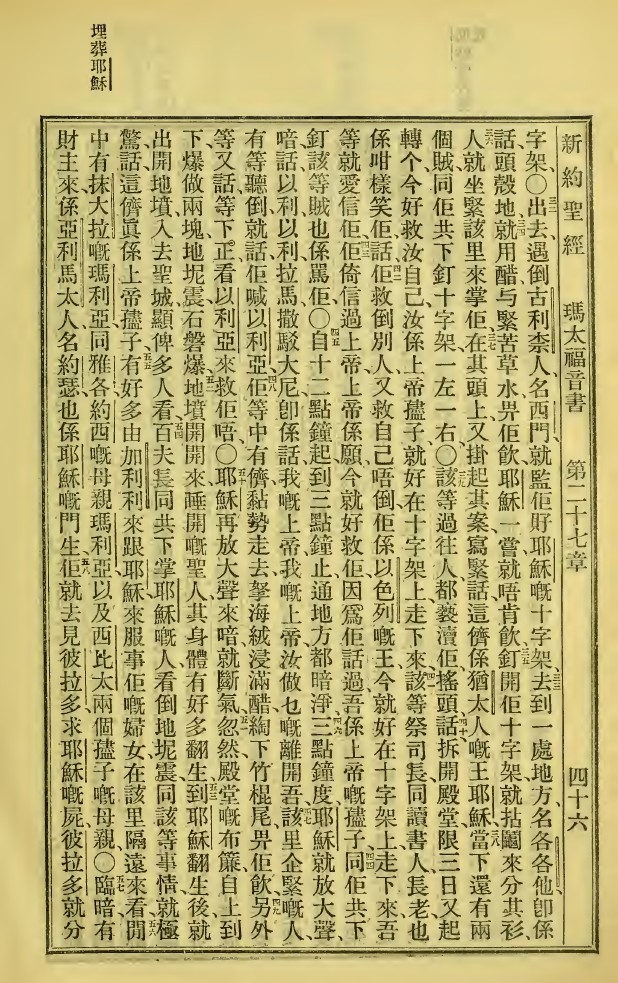 新約聖經 瑪太福音書 第二十七章 四十六
字架、〇三二出去、遇倒古利柰人、名西門、就監佢䝼耶穌嘅十字架、三三去到一處地方、名各各他、卽係
話頭殼地、三四就用醋与緊苦草水畀佢飲、耶穌一嘗、就唔肯飲、三五釘開佢十字架、就拈鬮來分其衫、
三六人就坐緊該里來掌佢、三七在其頭上、又掛起其案、寫緊話、這儕係猶太人嘅王耶穌、三八當下還有兩
個賊、同佢共下釘十字架、一左一右、〇三九該等過往人都褻瀆佢、搖頭話、四十拆開殿堂、限三日又起
轉个、今好救汝自己、汝係上帝孻子、就好在十字架上走下來、四一該等祭司長、同讀書人、長老、也
係咁樣笑佢話、四二佢救倒別人、又救自己唔倒、佢係以色列嘅王、今就好在十字架上走下來、吾
等就愛信佢、四三佢倚信過上帝、上帝係願、今就好救佢、因爲佢話過吾係上帝嘅孻子、四四同佢共下
釘該等賊、也係罵佢、〇四五自十二點鐘起、到三點鐘止、通地方都暗淨、四六三點鐘度、耶穌就放大聲
喑話、以利以利拉馬撒駁大尼、卽係話、我嘅上帝、我嘅上帝、汝做乜嘅離開吾、四七該里企緊嘅人、
有等聽倒就話、佢喊以利亞、四八佢等中有儕黏勢走去、拏海絨浸滿醋、綯下竹棍尾、畀佢飲、四九另外
等又話、等下正看以利亞來救佢唔、〇五十耶穌再放大聲來喑、就斷氣、五一忽然殿堂嘅布簾、自上到
下、爆做兩塊、地坭震、石磐爆、五二地墳開、開來睡開嘅聖人、其身體有好多翻生、五三到耶穌翻生後、就
出開地墳、入去聖城、顯俾多人看、五四百夫長同共下掌耶穌嘅人、看倒地坭震、同該等事情、就極
驚話、這儕眞係上帝孻子、五五有好多由加利利來跟耶穌、來服事佢嘅婦女、在該里隔遠來看、五六閒
中有抹大拉嘅瑪利亞、同雅各約西嘅母親瑪利亞、以及西比太兩個孻子嘅母親、〇五七臨暗有
財主來、係亞利馬太人、名約瑟、也係耶穌嘅門生、五八佢就去見彼拉多、求耶穌嘅屍、彼拉多就分
埋葬耶穌